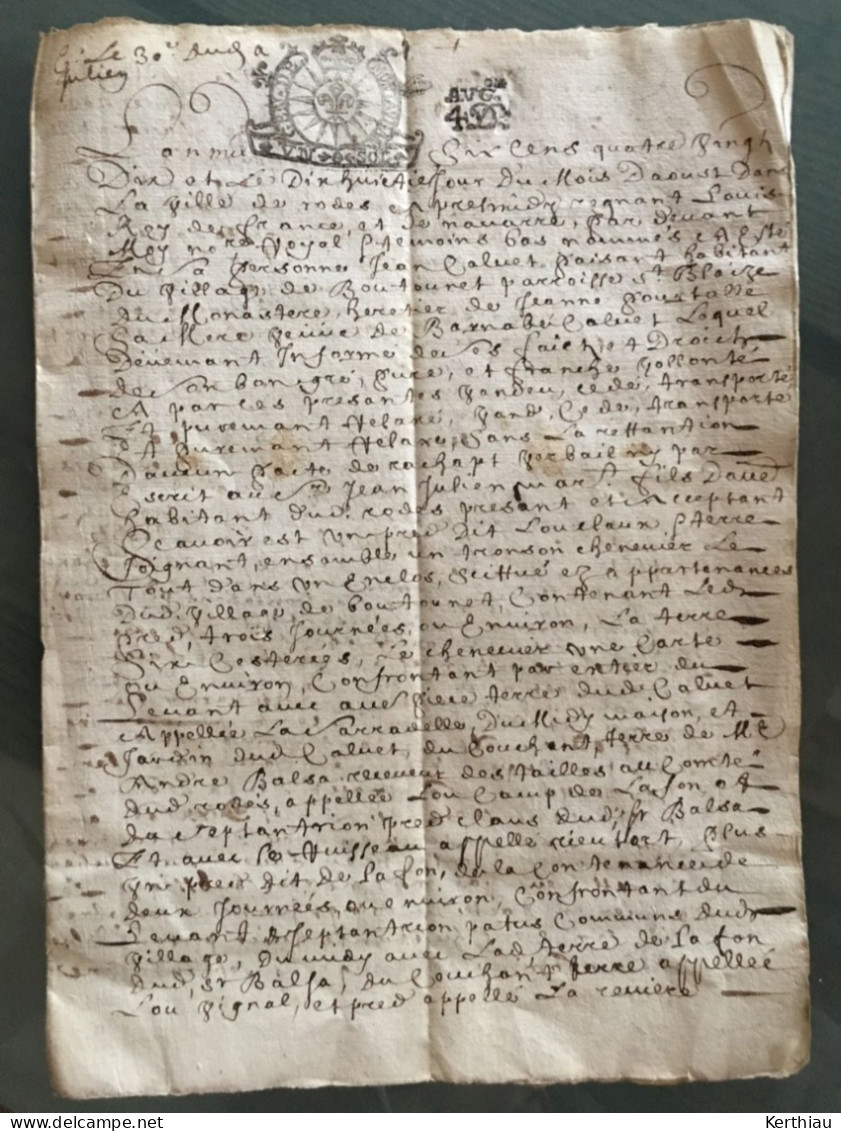 Le 30e
Julien
GEN. DE MONTAUBAN
VN SOL
AVG on
4 D
Lan mil Six Cens quatre Vingh
Dix et Le Dixhuictie Jour Du Mois Daoust Dans
La Ville de rodes regnant Louis
Rey de france, et de navarre, par devant
Moy no.re Royal & temoins bas nommés
En Sa personne Jean Calvet paisant habitant
Du Village de Boutounet parroisse St Blaize
du Monastere, heretier de Jeanne
Veuve de Barnabé Calvet Lequel
Deuemant Informé de ses faicts et Droicts
de Son bon gré, pure, et franche Vollonté
A par ces presantes Vandeu, cede, transporté
Et puremant relaxé, Vand, Cede, transporte
Et Puremant relaxe, Sans La rettantion
Daucun pacte de rachapt Verbail ny par
Escrit au Sr Jean Julien mar.t fils Daud
habitant dud. rodes presant et acceptant
Scavoir est un pred Dit Louclaux, terre
Joignant, ensamble un tronson chenevier Le
tout dans un Enclos, scittué ez appartenances
Dud. Village de boutounet, Contenant Led
pred, trois Journées, ou Environ, La terre
Six Cesteries, Le chenevier une Carte
ou Environ, Confrontant par entier du
Levant avec terre dud. Calvet
Appellée La Sarradelle, Du Midy maison, et
Jardin dud. Calvet, du Couchant, terre de Me
André Balsa receveur des tailles au Comté
dud rodes, appellée Lou Camp de Lafon, et
du Septantrion pred Claus dud. Sr Balsa
Et avec Le Ruisseau appellé rieutort, Plus
Un pred dit de Lafon, de la Contenance de
deux Journées, ou environ, Confrontant du
Levant & Septantrion patus Communs dud
Village, Du midy avec Lad. terre de Lafon
dud. Sr Balsa, du Couchant terre appellée
Lou Vignal, et pred appellé La reviere
Kerthiau